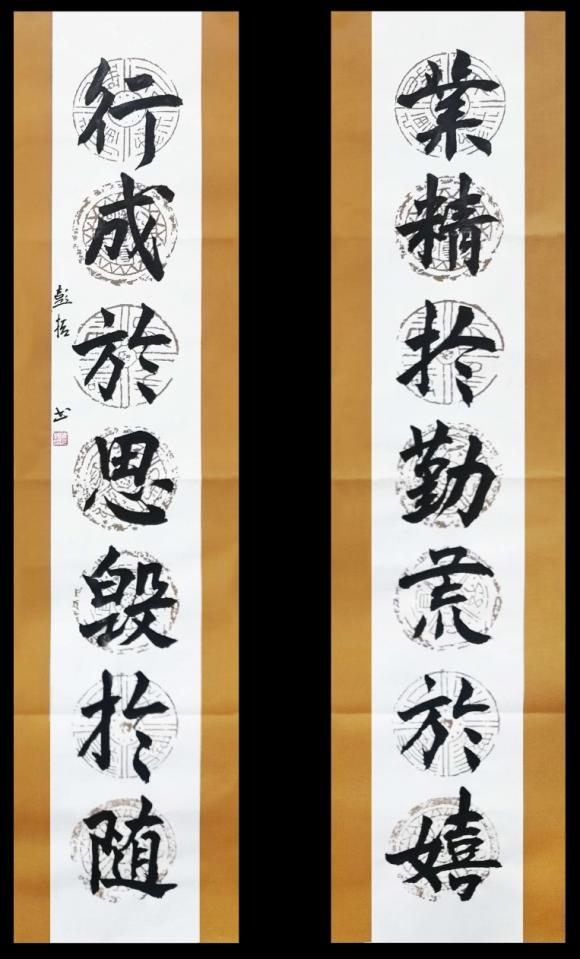 業精於勤荒於嬉
行成於思毀於随
彭哲 书